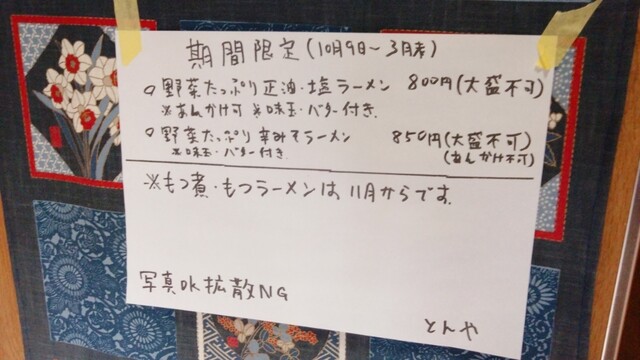 期間限定(10月9日～3月末)
○野菜たっぷり正油・塩ラーメン 800円(大盛不可)
※あんかけ可 ※味玉・バター付き
○野菜たっぷり辛みそラーメン 850円(大盛不可)
※味玉・バター付き (あんかけ不可)
※もつ煮・もつラーメンは11月からです。
写真OK拡散NG
とんや